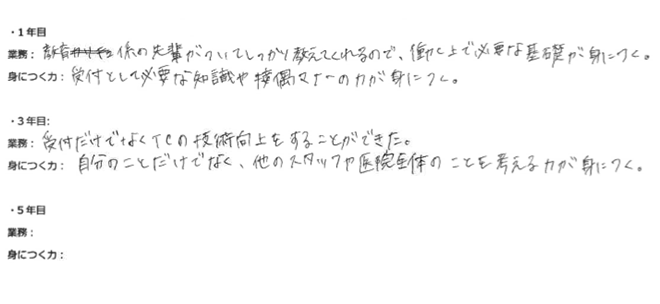 ・1年目
業務： 教育係の先輩がついてしっかり教えてくれるので、働く上で必要な基礎が身につく。
身につく力： 受付として必要な知識や接偶マナーの力が身につく。
・3年目:
業務： 受付だけでなくTCの技術向上をすることができた。
身につく力： 自分のことだけでなく、他のスタッフや医院全体のことを考える力が身につく。
・5年目
業務：
身につく力：